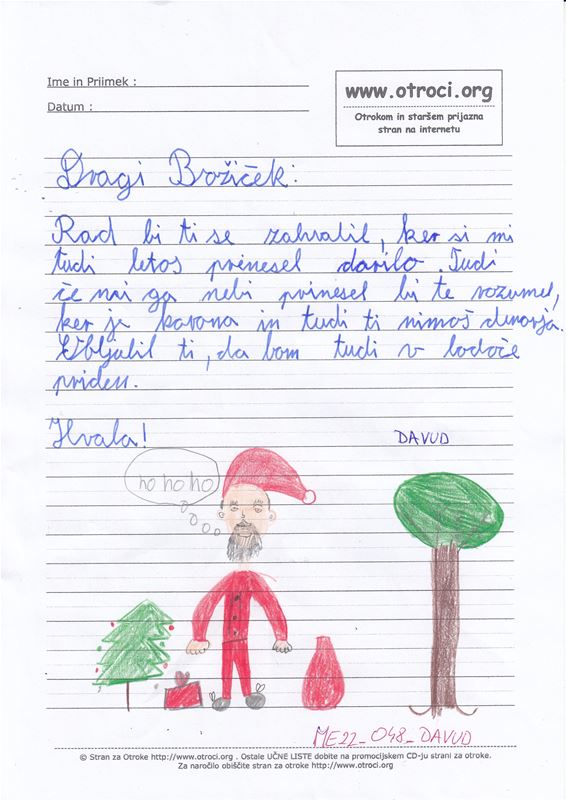 Ime in Priimek :
Datum :
www.otroci.org
Otrokom in staršem prijazna
stran na internetu
Dragi Božiček:
Rad bi ti se zahvalil, ker si mi
tudi letos prinesel darilo. Tudi
če mi ga nebi prinesel bi te rozumel,
ker je korona in tudi ti nimaš denarja.
Obljubil ti, da bom tudi v bodoče
priden.
Hvala!
DAVUD
ho ho ho
ME22_048_DAVUD
© Stran za Otroke http://www.otroci.org . Ostale UČNE LISTE dobite na promocijskem CD-ju strani za otroke.
Za naročilo obiščite stran za otroke http://www.otroci.org